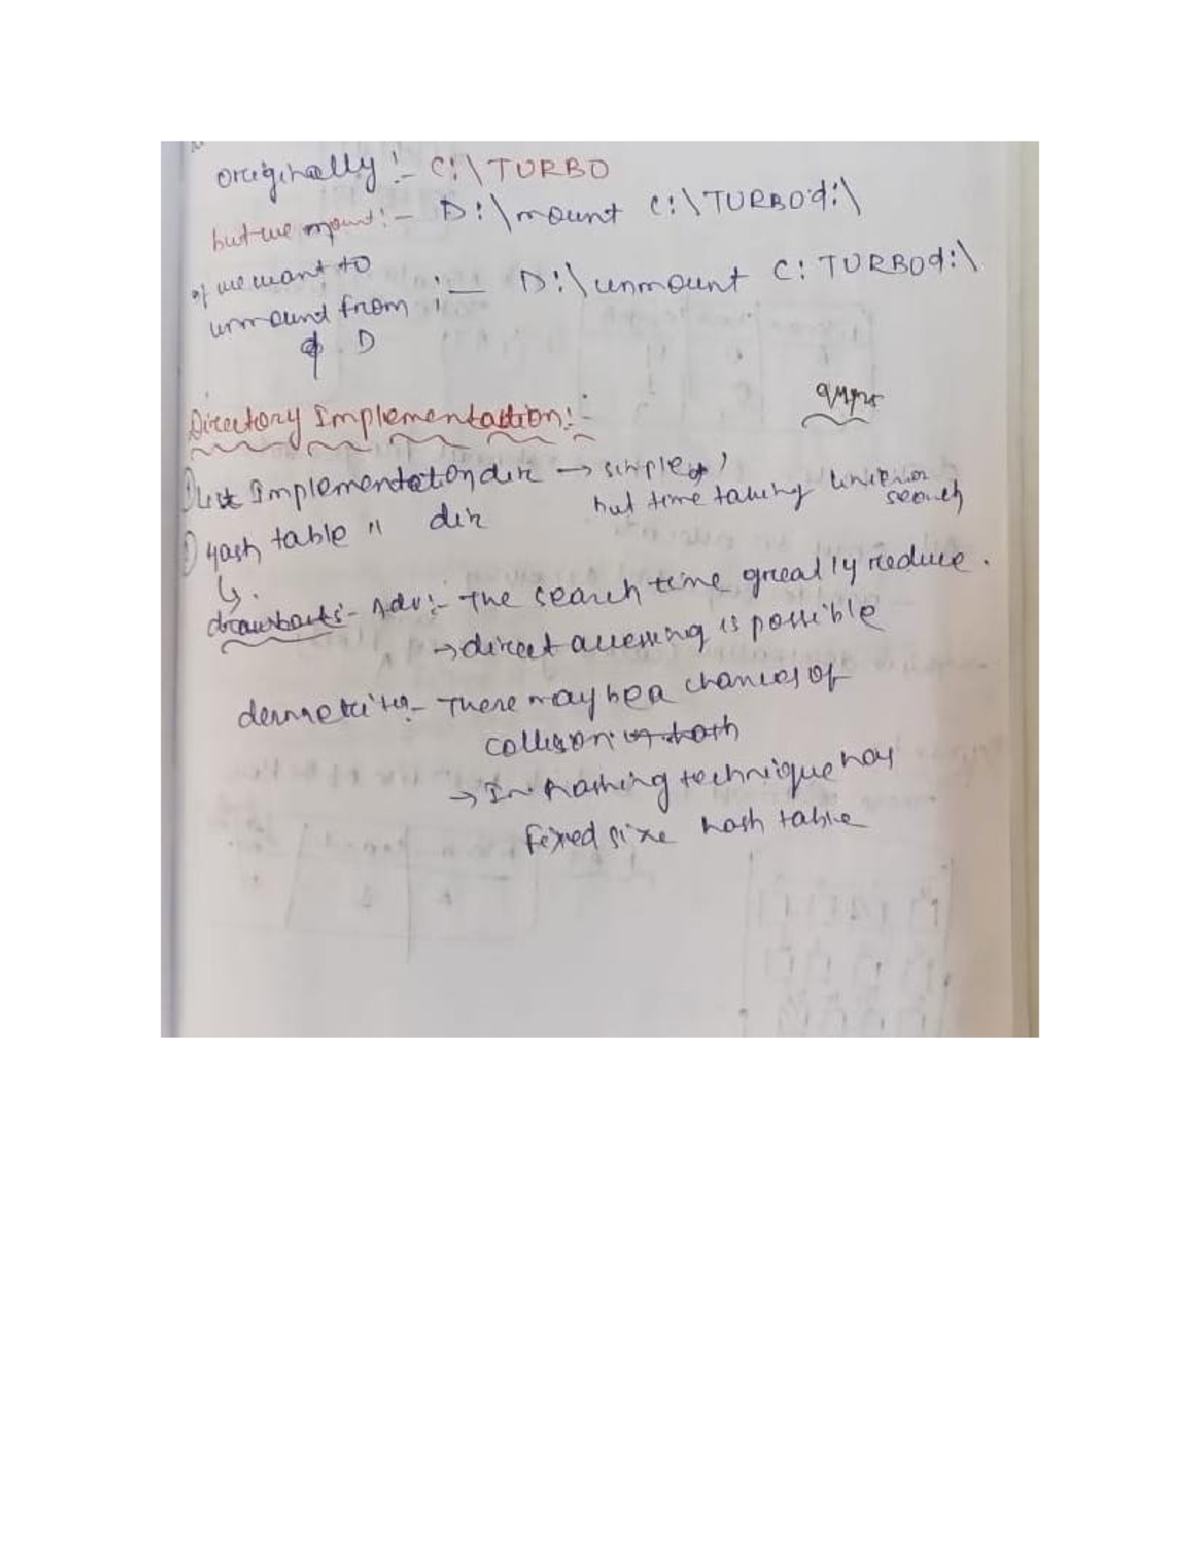 originally :- C:\TURBO
but we mount :- D:\mount C:\TURBO d:\
if we want to
unmount from :- D:\unmount C: TURBO d:\
D
Directory Implementation :-
1) List Implementation dir → simple,
but time taking linear search
2) Hash table " dir
↳
drawbacks :- Adv :- The search time greatly reduce.
→ direct accessing is possible
demerits :- There may be a chances of
collision
→ In hashing technique has
fixed size hash table